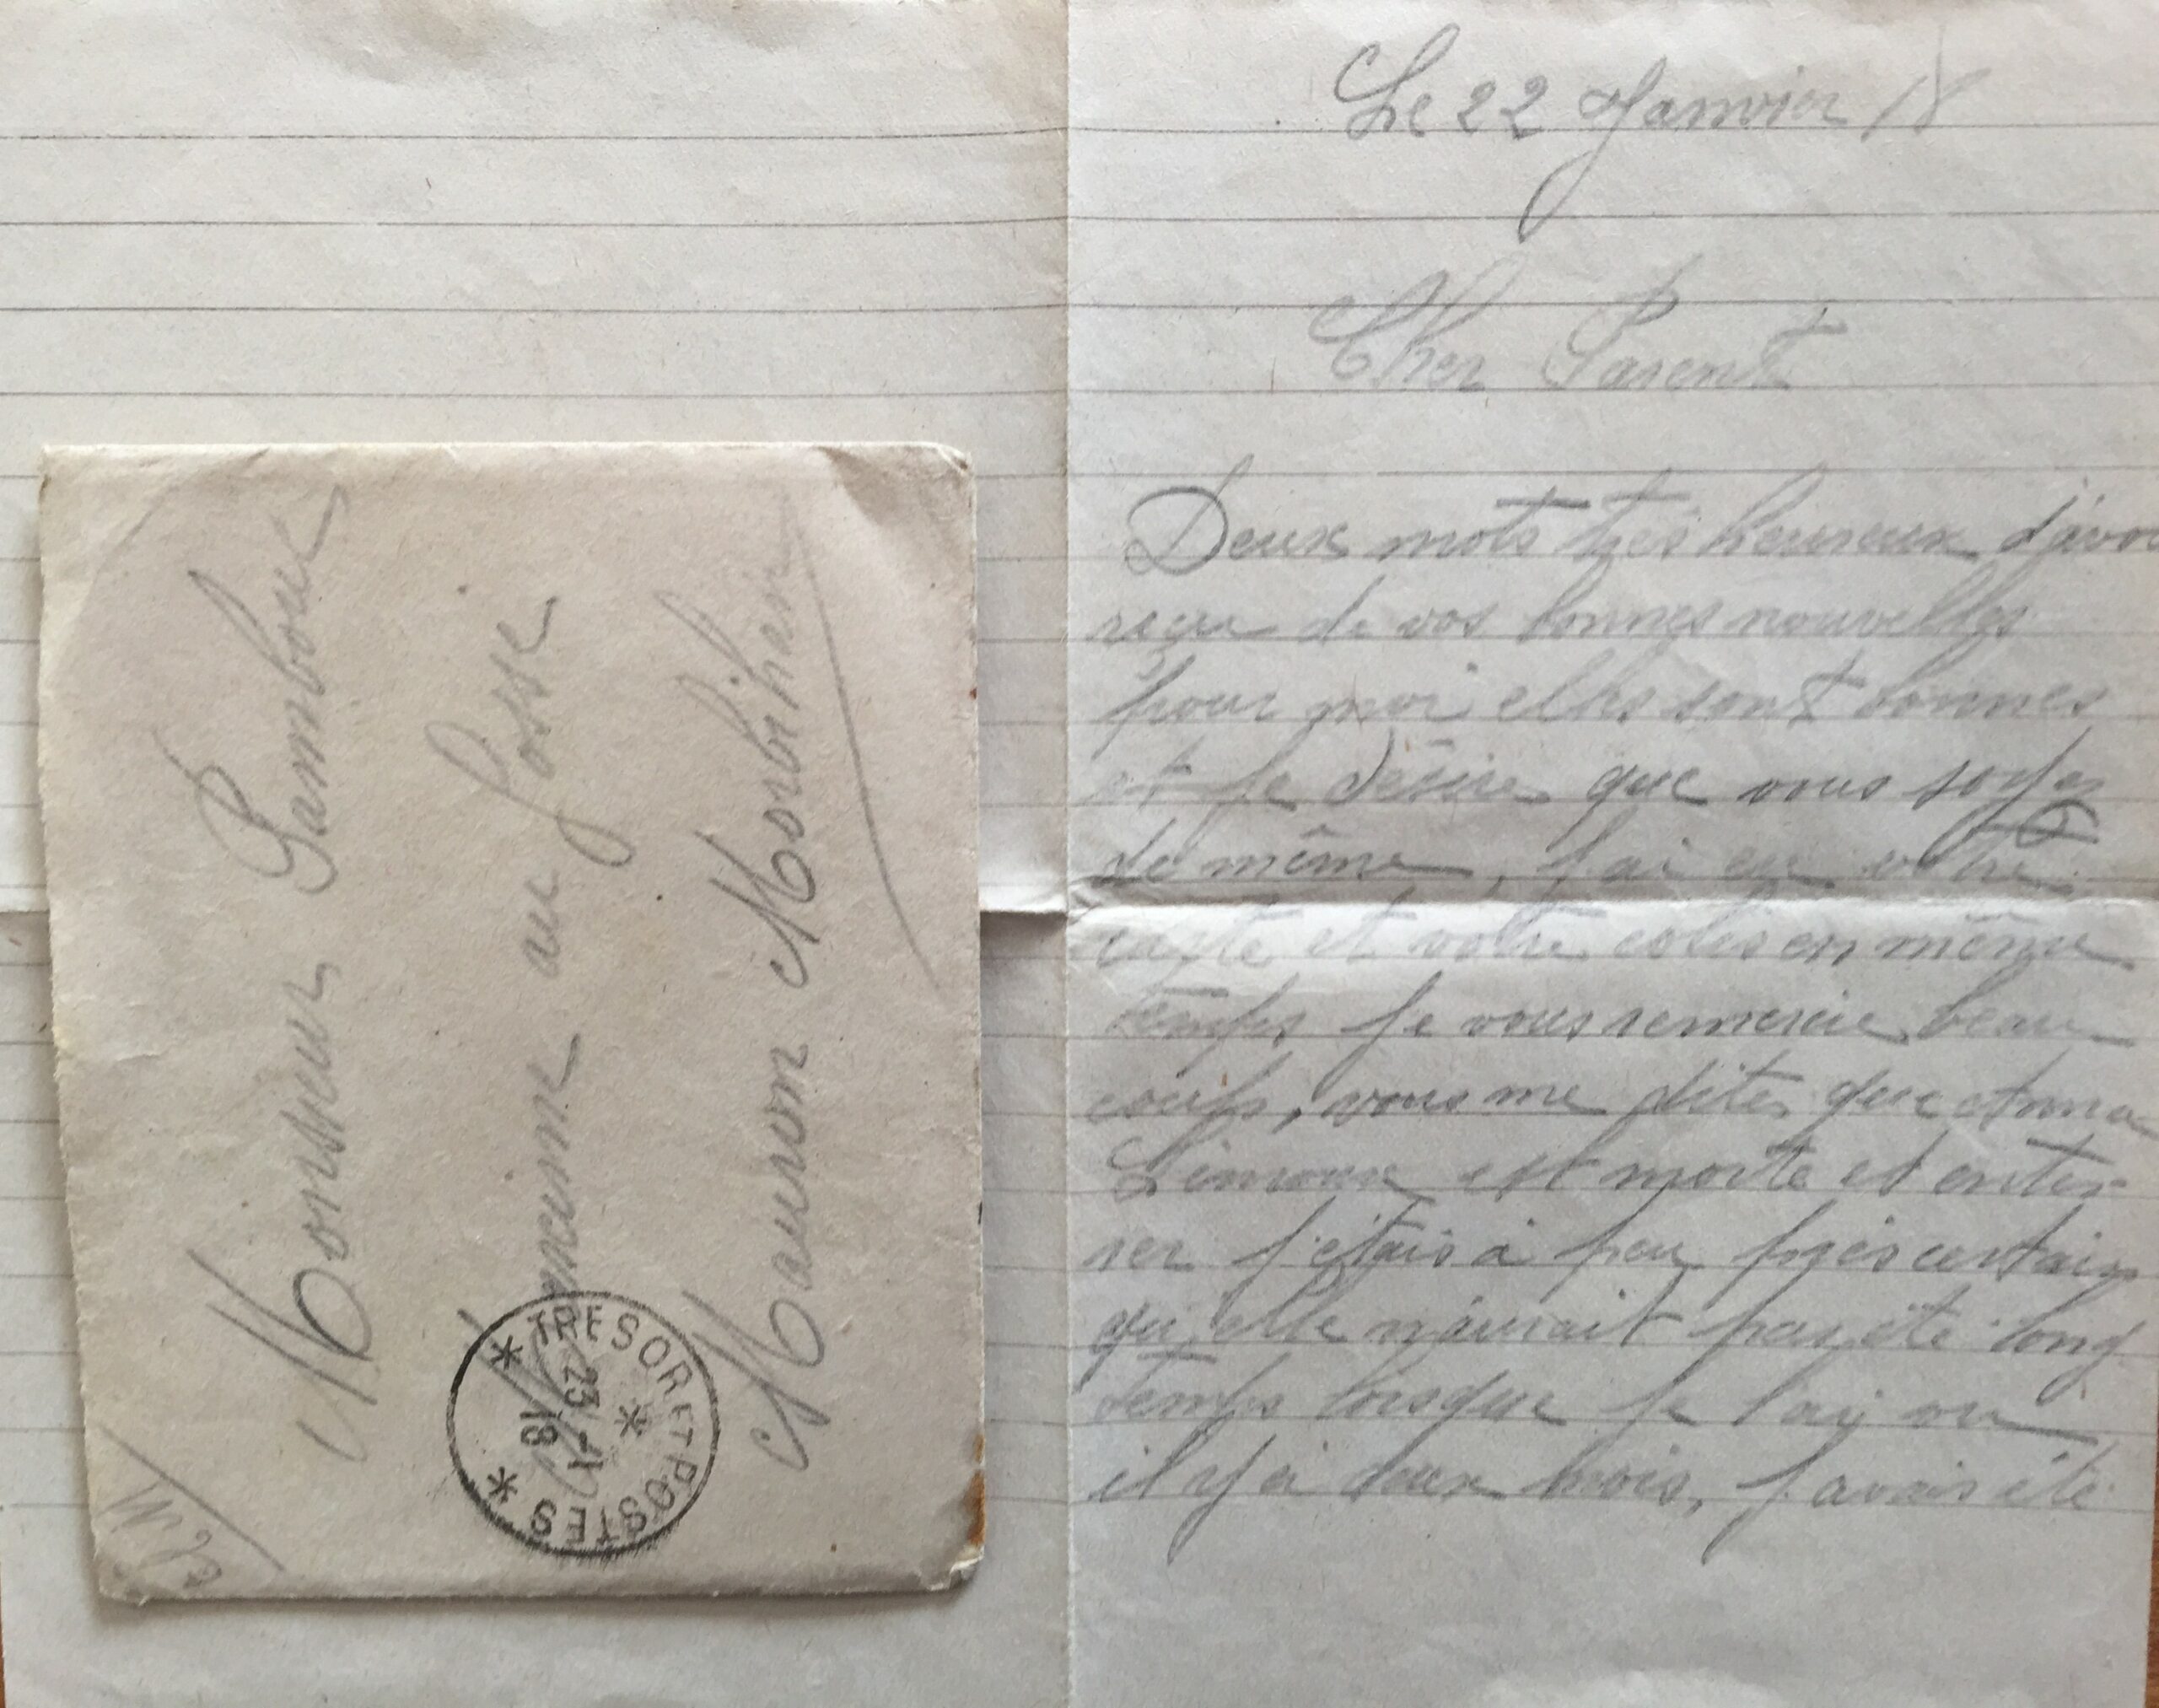 F M
Monsieur Pambour
au Fosse
Mauron Morbihan
TRESOR ET POSTES
23 - 1
18
Le 22 Janvier 18
Cher Parent
Deux mots très heureux d'avoi
reçu de vos bonnes nouvelles
pour moi elles sont bonnes
et je désire que vous soyez
de même, j'ai eu votre
carte et votre colis en même
temps je vous remercie beau-
coup, vous me dites que Anna
est morte et enter-
rer j'étais à peu près certain
qu'elle n'aurait pas été long
temps lorsque je l'ai vu
il y a deux mois, j'avais été